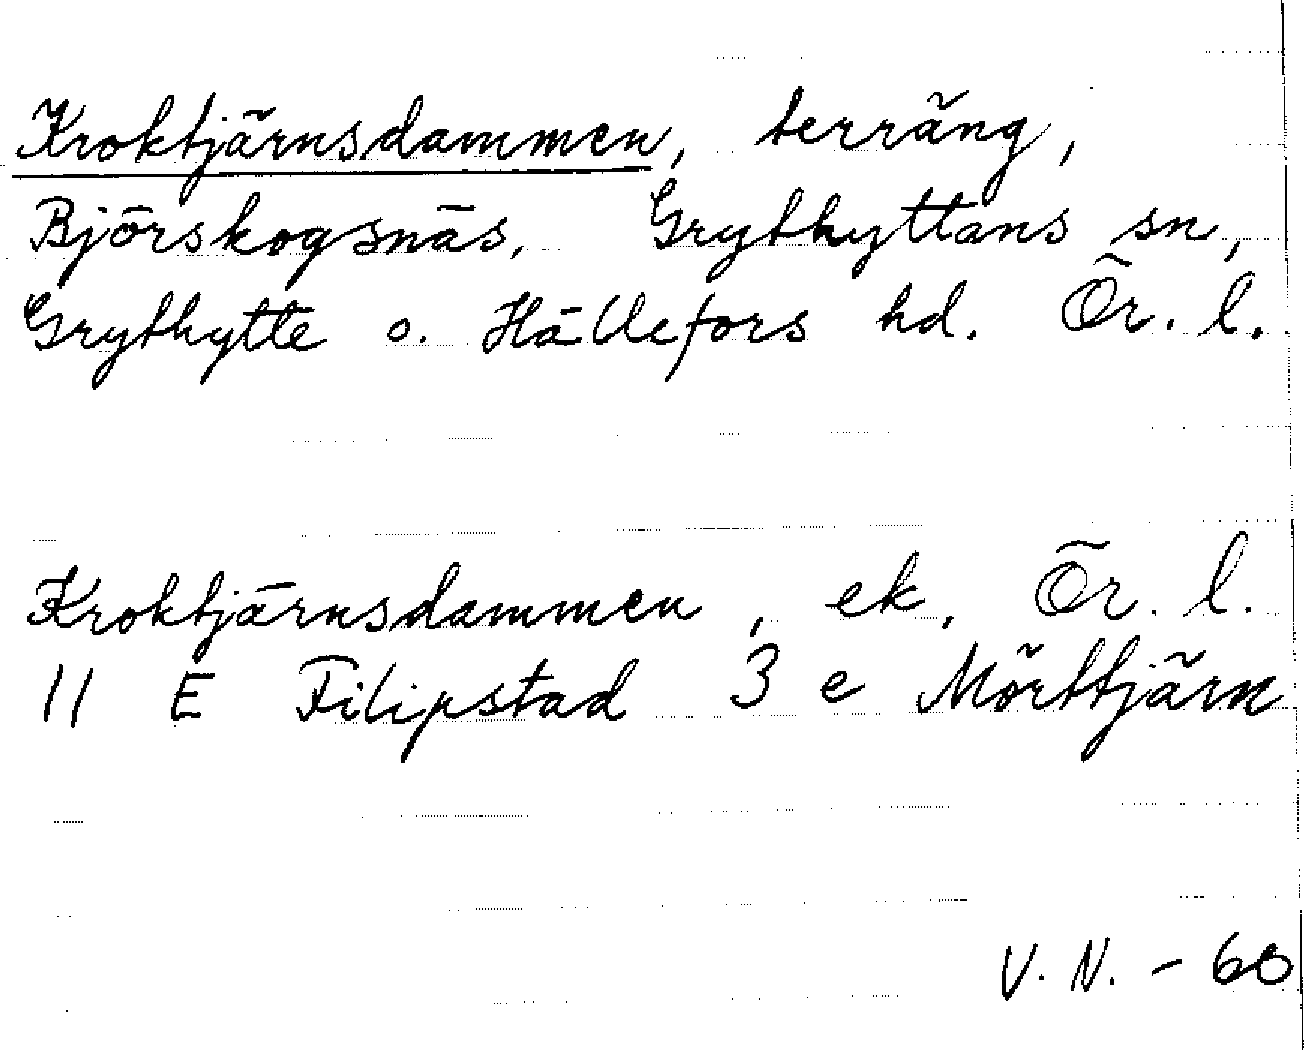 Kroktjärnsdammen, terräng,
Björskogsnäs, Grythyttans sn,
Grythytte o. Hällefors hd. Ör. l.
Kroktjärnsdammen, ek, Ör. l.
11 E Filipstad 3 e Mörttjärn
V. N. - 60